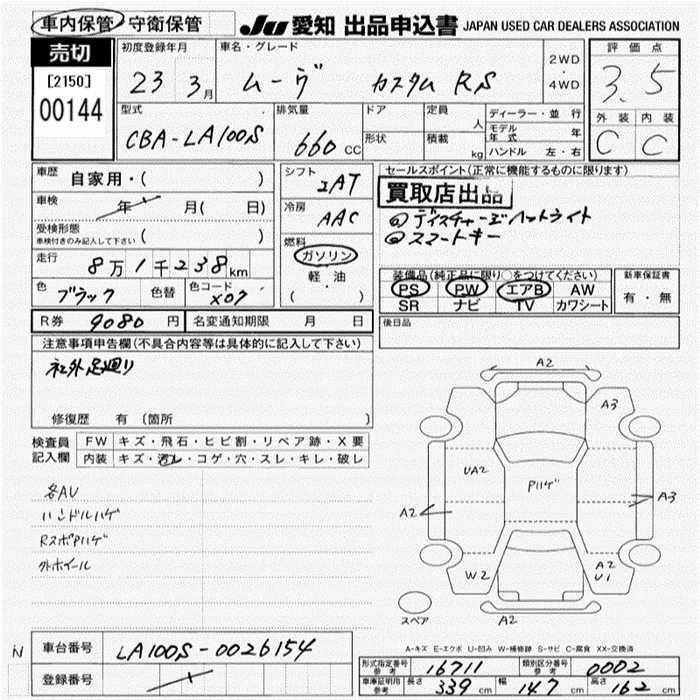 車内保管・守衛保管 JU 愛知 出品申込書 JAPAN USED CAR DEALERS ASSOCIATION
売切 初度登録年月 車名・グレード 評価点
[2150] 23 3月 ムーヴ カスタム RS 2WD・4WD 3.5
00144
型式 排気量 ドア 定員 人 ディーラー・並行 外装 内装
CBA-LA100S 660cc 形状 積載 kg モデル年式 年 C C
ハンドル 左・右
車歴 自家用・( ) シフト セールスポイント(正常に機能するものに限ります)
2AT 買取店出品
車検 年 月( 日) 冷房 AAC ◎ディスチャージヘットライト
受検形態 車検付きのみ記入して下さい ( ) ◎スマートキー
走行 8万1千238km 燃料 ガソリン
軽・油
( )
装備品(純正品に限り○をつけてください) 新車保証書
色 ブラック 色替 色コード X07 PS PW エアB AW 有・無
SR ナビ TV カワシート
R券 9080円 名変通知期限 月 日 後日品
注意事項申告欄(不具合内容等は具体的に記入して下さい)
社外足廻り
修復歴 有 〔箇所 〕
検査員記入欄 FW キズ・飛石・ヒビ割・リペア跡・X要
内装 キズ・汚レ・コゲ・穴・スレ・キレ・破レ
各AU
ハンドルハゲ
RスポPハゲ
外ホイール
A2
A3
UA2 Pハゲ
A2 A3
W2 A2
U1
スペア A2
A-キズ E-エクボ U-凹み W-補修跡 S-サビ C-腐食 XX-交換済
N 車台番号 LA100S-0026154
登録番号
形式指定番号 参考 16711 類別区分番号 参考 0002
車庫証明用 参考 長さ 339cm 幅 147cm 高さ 162cm